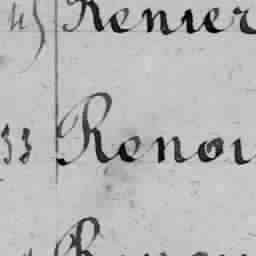 45 Renier
33 Renou